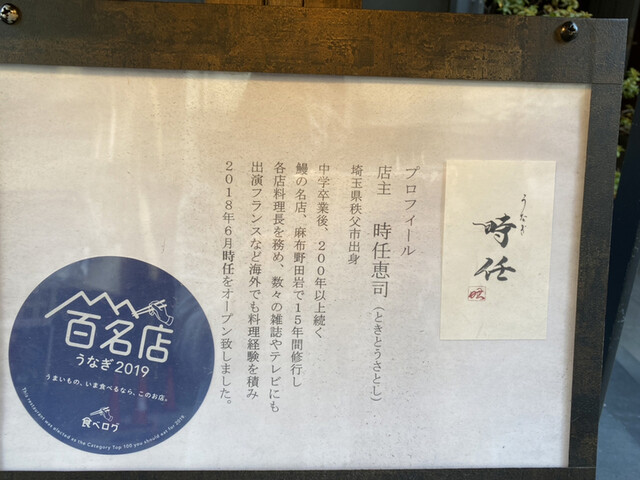 うなぎ
時任
プロフィール
店主 時任恵司(ときとうさとし)
埼玉県秩父市出身
中学卒業後、200年以上続く
鰻の名店、麻布野田岩で15年間修行し
各店料理長を務め、数々の雑誌やテレビにも
出演フランスなど海外でも料理経験を積み
2018年6月時任をオープン致しました。
百名店
うなぎ2019
うまいもの、いま食べるなら、このお店。
食べログ
This restaurant was elected as the Category Top 100 you should eat for 2019